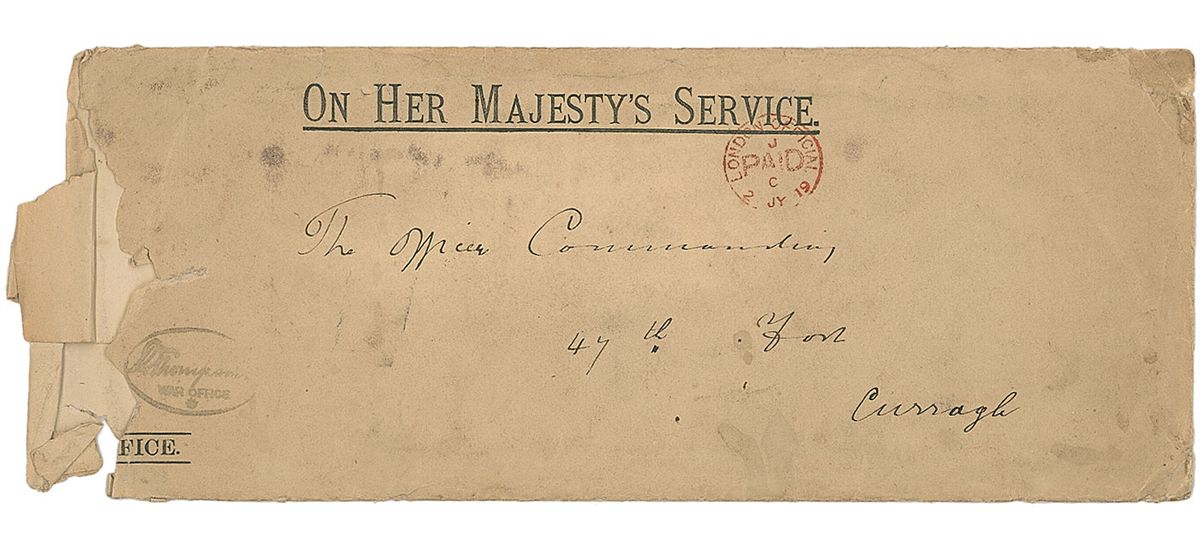 ON HER MAJESTY'S SERVICE.
LONDON OFFICIAL
J
PAID
C
2 JY 19
The Officer Commanding
47th Foot
Curragh
Thompson
WAR OFFICE
FICE.